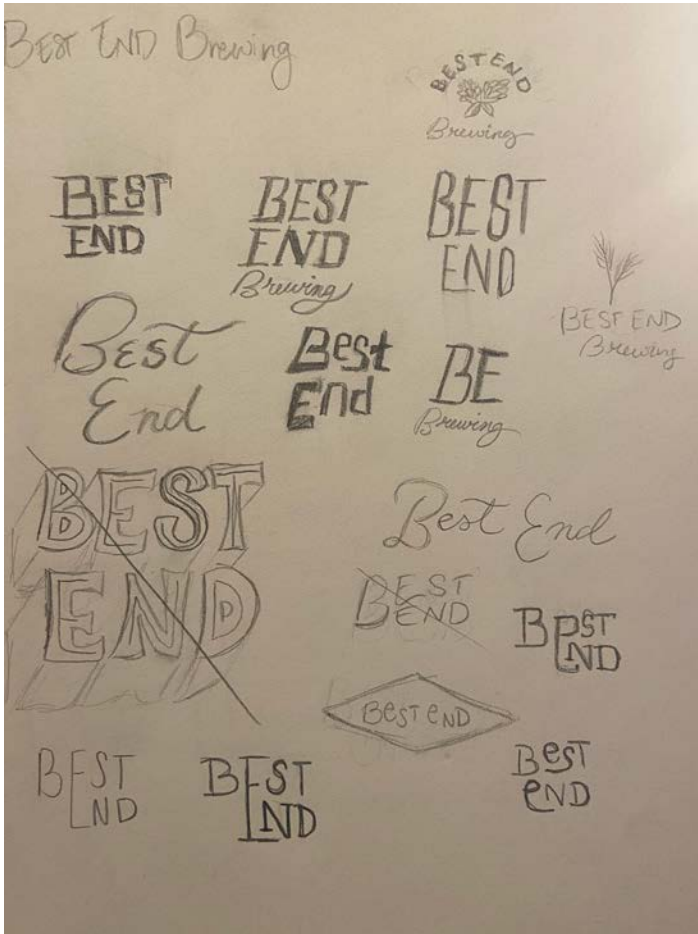 BEST END Brewing
BEST END
Brewing
BEST
END
BEST
END
Brewing
BEST
END
BEST END
Brewing
Best
End
Best
End
BE
Brewing
BEST
END
Best End
BEST
END
BEST
END
BeST eND
BEST
END
BEST
END
BeST
eND